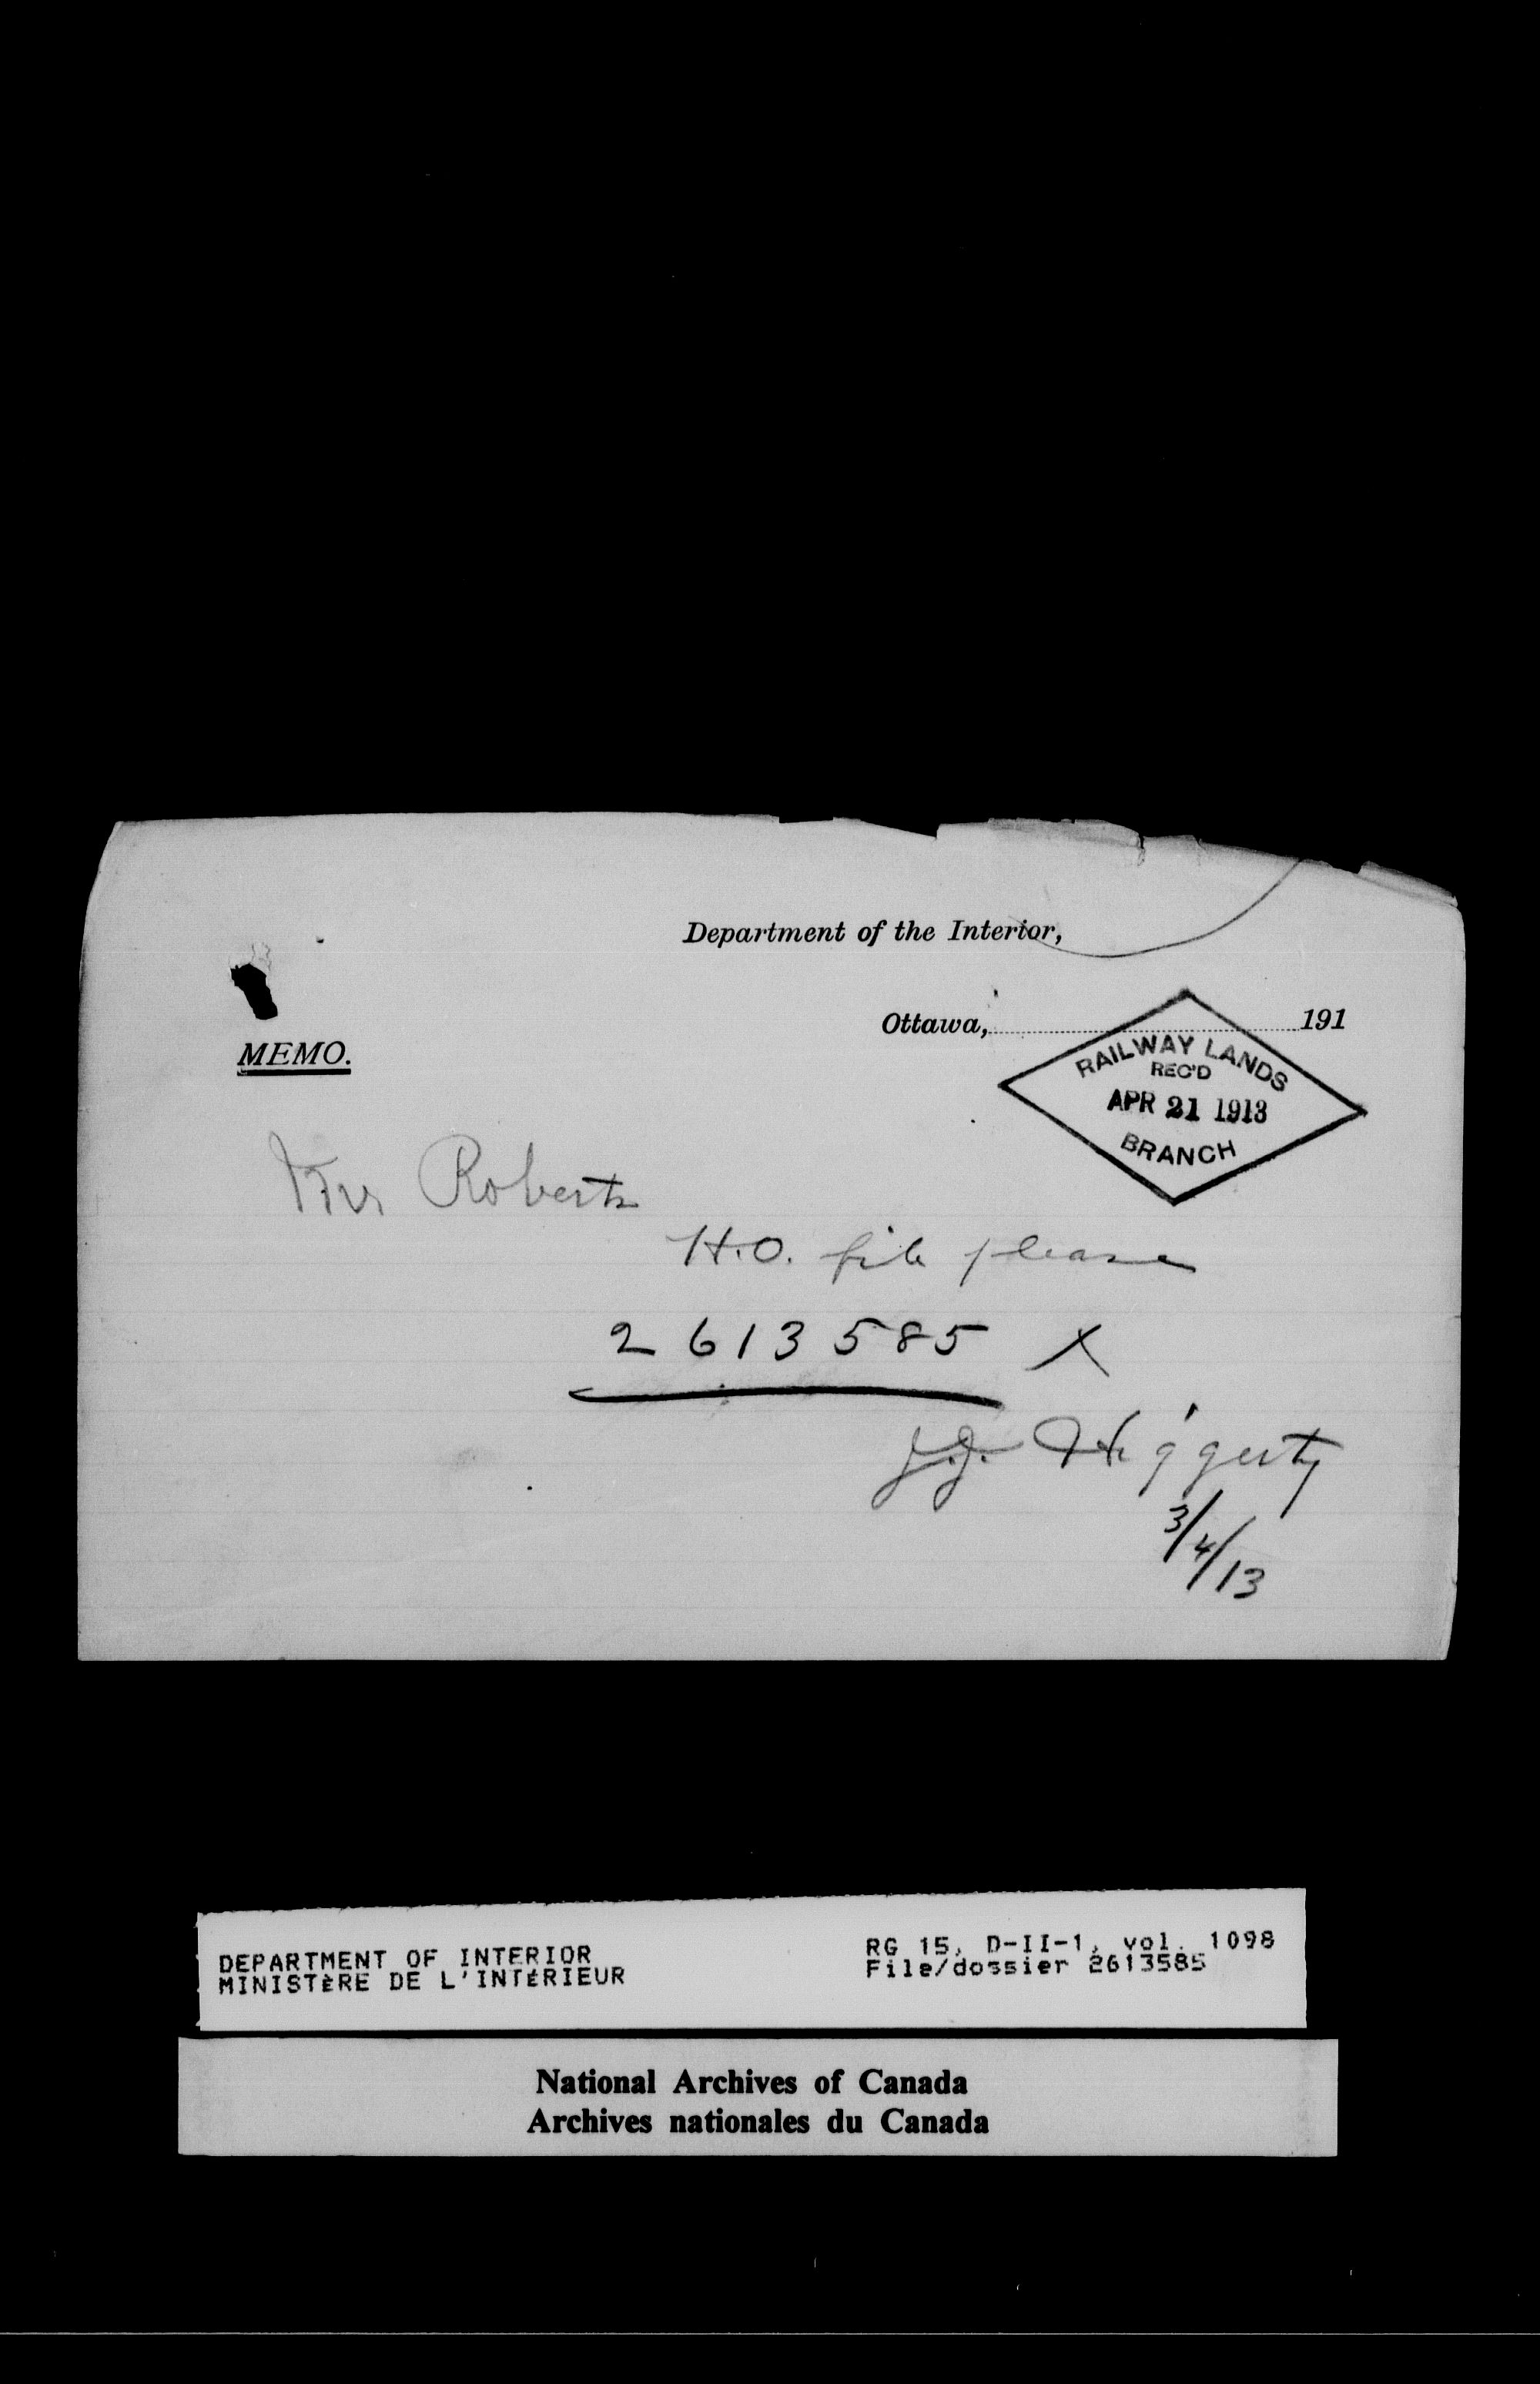 Department of the Interior,
Ottawa, 191
MEMO.
RAILWAY LANDS
REC'D
APR 21 1913
BRANCH
Mr Roberts
H.O. file please
2613585 X
J.J. Heggerty
3/4/13
DEPARTMENT OF INTERIOR
MINISTÈRE DE L'INTÉRIEUR
RG 15, D-II-1, vol. 1098
File/dossier 2613585
National Archives of Canada
Archives nationales du Canada